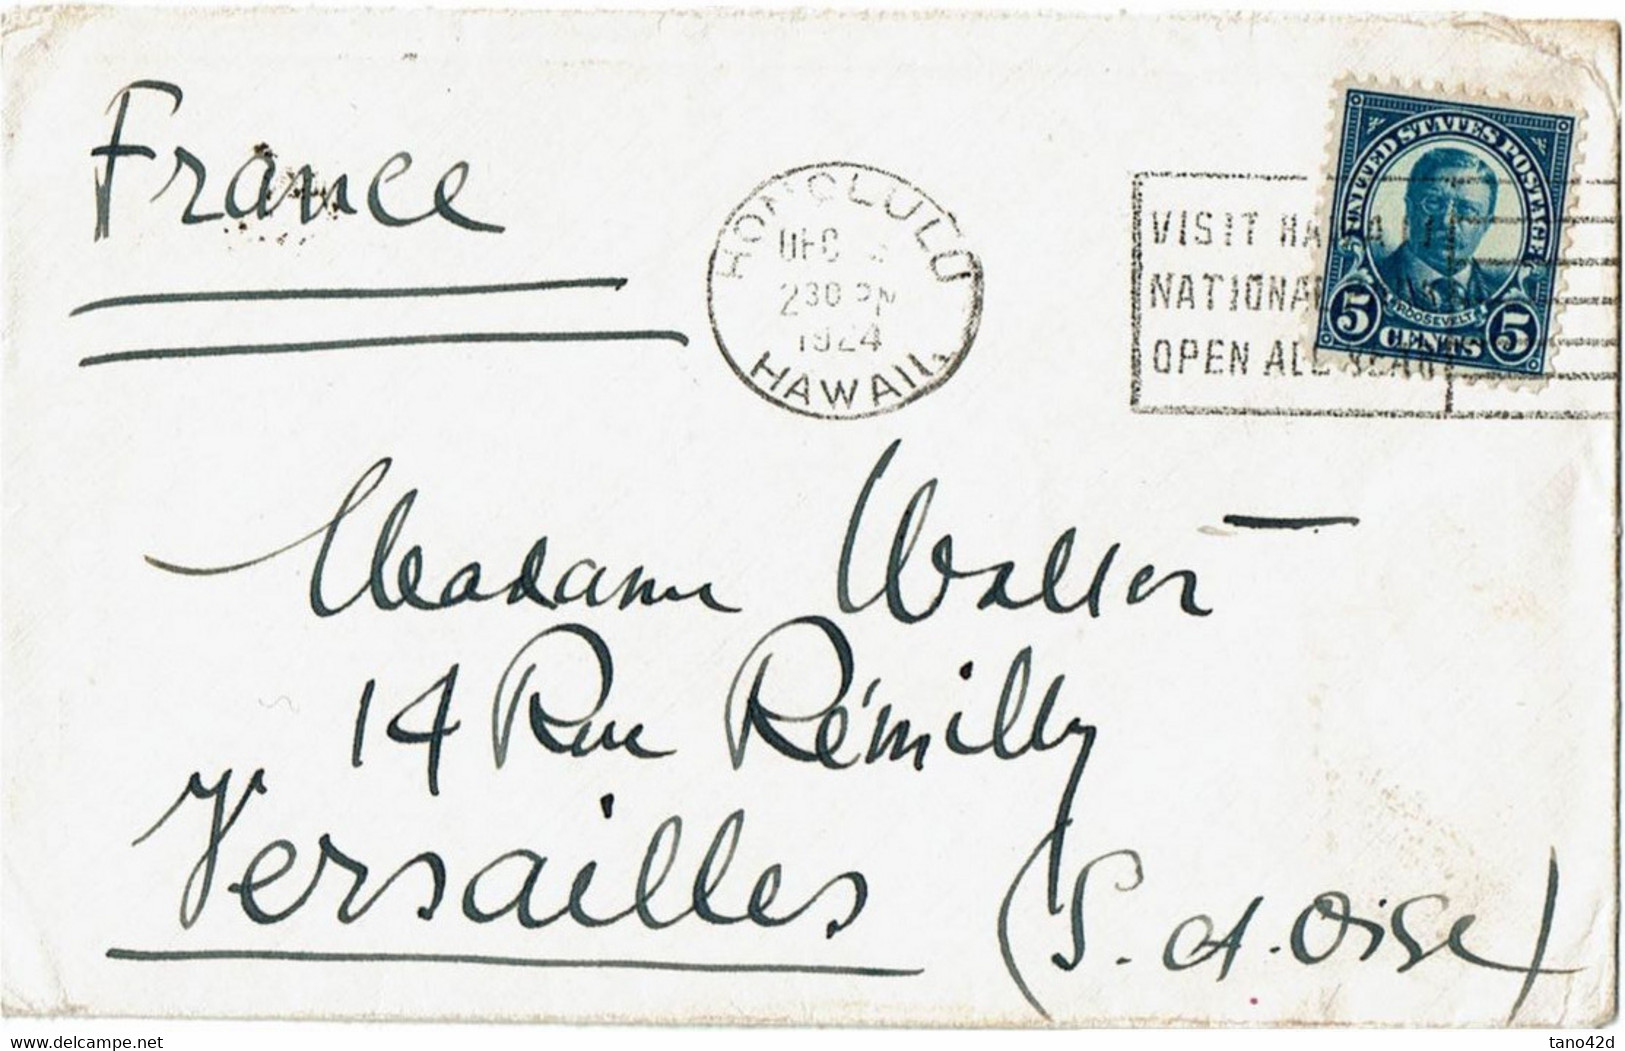 France
HONOLULU
DEC
2 30 PM
1924
HAWAII
VISIT HAWAII
NATIONAL PARK
OPEN ALL YEAR
UNITED STATES POSTAGE
ROOSEVELT
5 CENTS 5
Madame Walter
14 Rue Rémilly
Versailles (S. et. Oise)
delcampe.net
tano42d